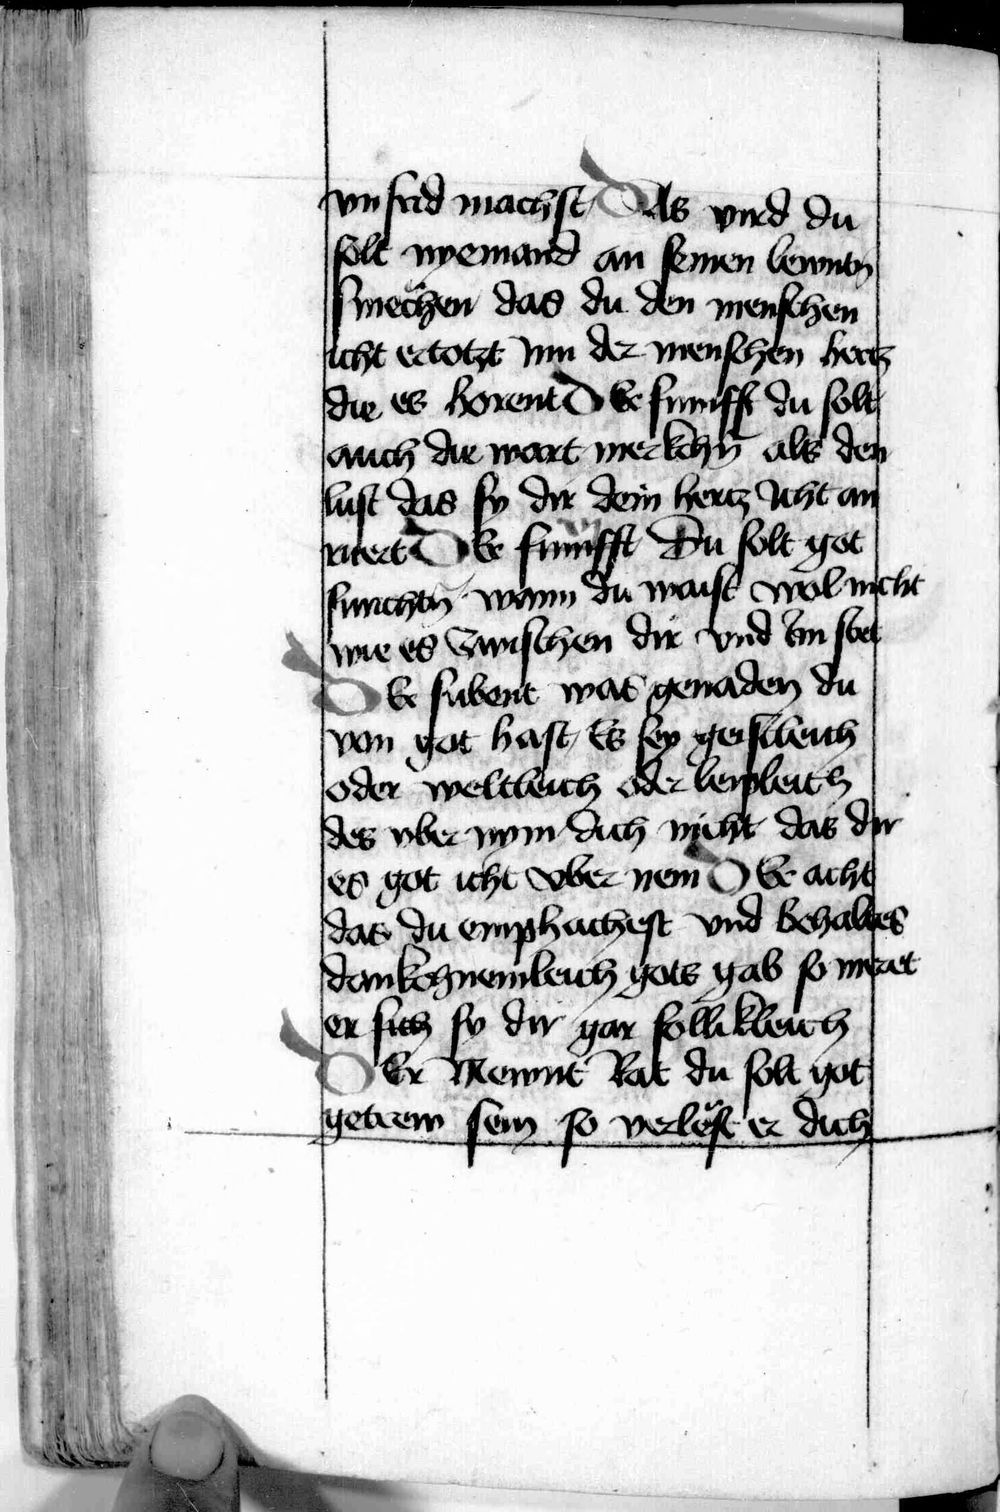 vnfrid machst Das vierd du
solt nyemand an seinen lewnten
smechen das du den menschen
icht ertotzt inn der menschen hertz
die es horent Das funifft du solt
auch die wort merkchen als den
lust das sy dir dein hertz icht an
ruert Das funifft vj Du solt got
furichten wann du waist wol nicht
wie es zwischen dir vnd im stet
Das subent was genaden du
von got hast Es sey geistleich
oder weltleich oder leipleich
des vber nym dich nicht das dir
es got icht vber nem Das acht
das du emphachest vnd behaltes
dankchnemleich gots gab so meret
er sich sy dir gar follikleich
Der Newnt Rat du solt got
getrew sein so verlest er dich